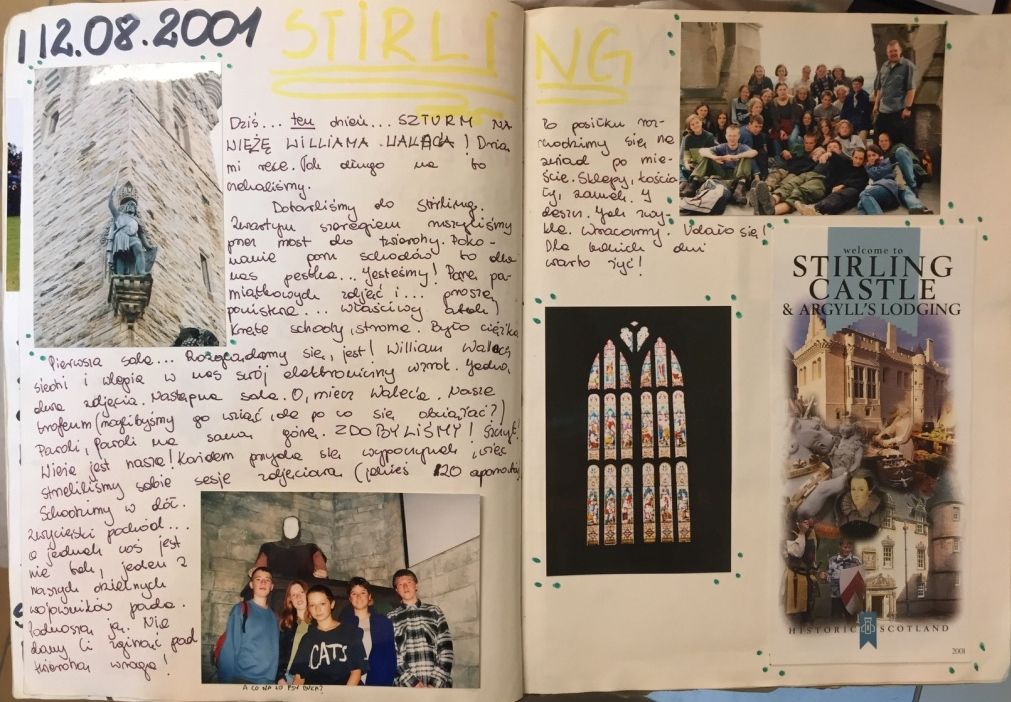 12.08.2001
STIRLING
Dziś... ten dzień... SZTURM NA
WIEŻĘ WILLIAMA WALACA! Drżą
mi ręce. Tak długo na to
czekaliśmy.
Dotarliśmy do Stirling.
Zwartym szeregiem ruszyliśmy
przez most do twierdzy. Poko-
nanie paru schodów to dla
nas pestka... Jesteśmy! Parę pa-
miątkowych zdjęć i... proszę
państwa... właściwy atak!
Kręte schody, strome. Było ciężko
Pierwsza sala... Rozglądamy się, jest! William Walach
siedzi i wlepia w nas swój elektroniczny wzrok. Jedno,
dwa zdjęcia. Następna sala. O, miecz Walece. Nasze
trofeum (moglibyśmy go wziąć, ale po co się obciążać?)
Paroli, paroli na samą górę. ZDOBYLIŚMY! Szczyt!
Wieża jest nasza! Każdemu przyda się wypoczynek, więc
strzeliliśmy sobie sesję zdjęciową (jakieś 120 aparatów)
Schodzimy w dół.
Zwycięski pochód...
a jednak coś jest
nie tak, jeden z
naszych dzielnych
wojowników pada.
Podnoszą ją. Nie
damy Ci zginąć pod
twierdzą wroga!
CATS
A CO NA TO PSY
Po posiłku roz-
chodzimy się na
zwiad po mie-
ście. Sklepy, kościo-
ły, zamek. I
deszcz. Jak zwy-
kle. Wracamy. Udało się!
Dla takich dni
warto żyć!
welcome to
STIRLING
CASTLE
& ARGYLL'S LODGING
HISTORIC SCOTLAND
2001